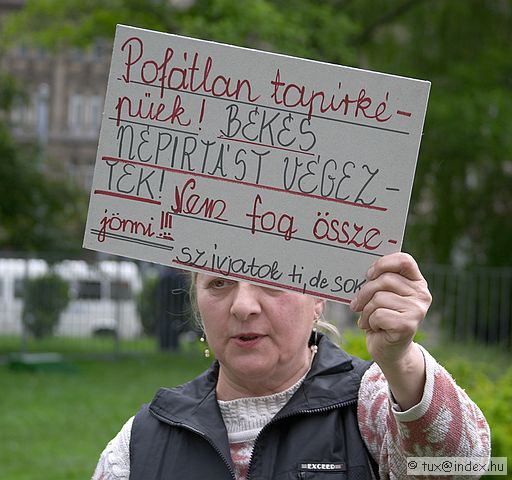 Pofátlan tapírké-
püek! BÉKÉS
NÉPIRTÁST VÉGEZ-
TEK! Nem fog össze-
jönni!!!
szívjatok ti, de SOK
EXCEED
© tux@index.hu